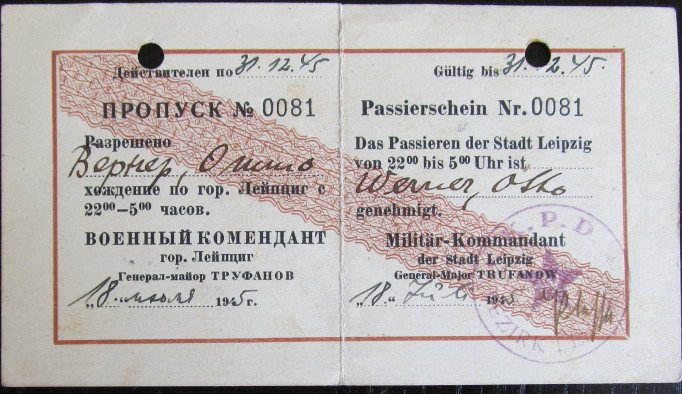 Действителен по 31.12.45
ПРОПУСК № 0081
Разрешено
Вернер, Отто
хождение по гор. Лейпциг с
22⁰⁰—5⁰⁰ часов.
ВОЕННЫЙ КОМЕНДАНТ
гор. Лейпциг
Генерал-майор ТРУФАНОВ
„18 июля 1945 г.
Gültig bis 31. 2.45.
Passierschein Nr. 0081
Das Passieren der Stadt Leipzig
von 22⁰⁰ bis 5⁰⁰ Uhr ist
Werner, Otto
genehmigt.
Militär-Kommandant
der Stadt Leipzig
General-Major TRUFANOW
„18.“ Juli 1945
P. D.
BEZIRK